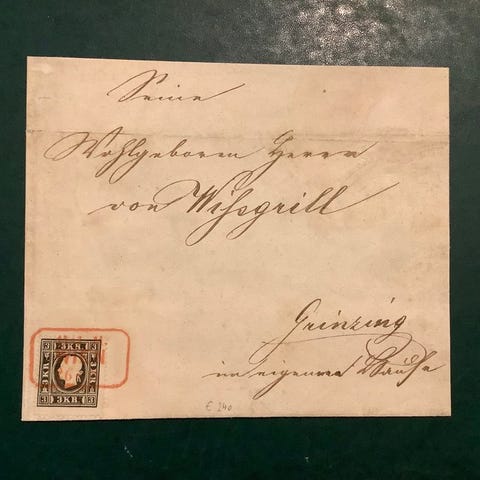 Seine
Wohlgeboren Herrn
von Wißgrill
Grinzing
im eigenen Hause
3 3 KR. 3
3 KR. 3 KR.
3 3 KR. 3
€ 240